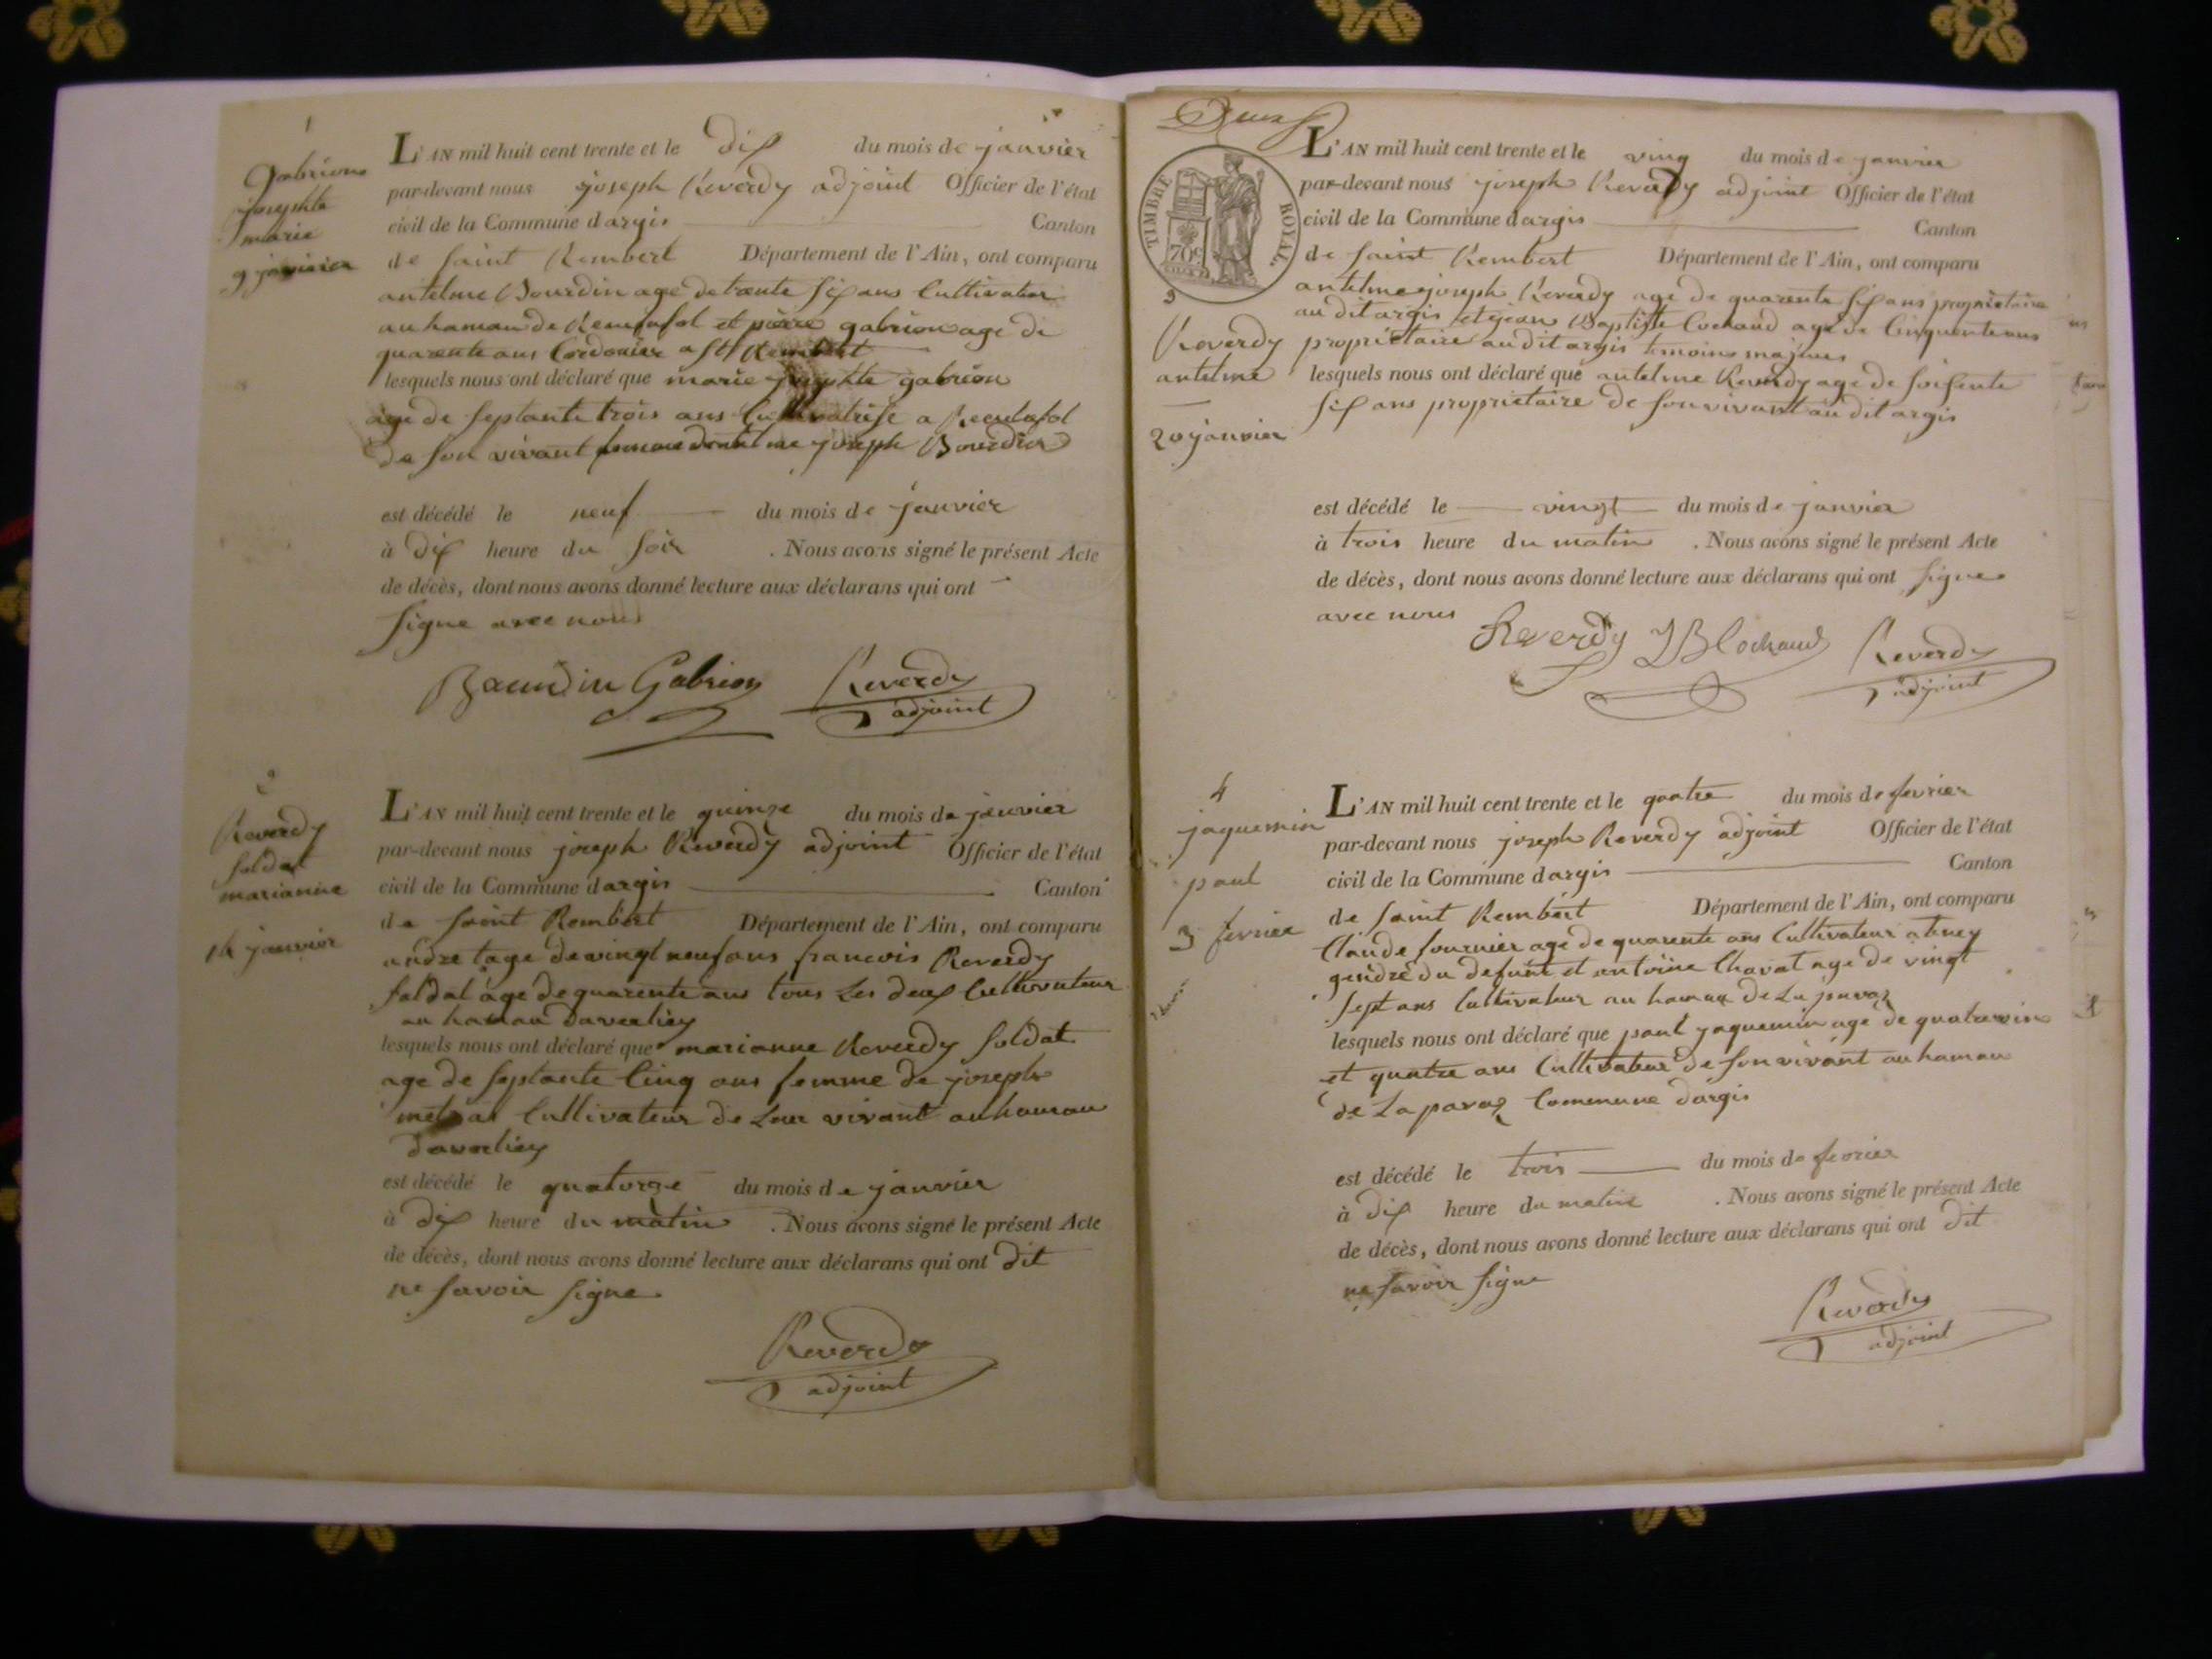 1
gabrion
josephte
marie
9 janvier
L'AN mil huit cent trente et le dix du mois de janvier
par-devant nous joseph Reverdy adjoint Officier de l'état
civil de la Commune dargis Canton
de saint Rembert Département de l'Ain, ont comparu
antelme Bourdin age de trente six ans Cultivateur
au hamau de et pierre gabrion age de
quarente ans Cordonier a St Rembert
lesquels nous ont déclaré que marie josephte gabrion
age de septante trois ans Cultivatrise a
de son vivant femme dantelme joseph Bourdin
est décédé le neuf du mois de janvier
à dix heure du soir . Nous avons signé le présent Acte
de décès, dont nous avons donné lecture aux déclarans qui ont
signe avec nous
Bourdin Gabrion Reverdy
adjoint
2
Reverdy
soldat
marianne
14 janvier
L'AN mil huit cent trente et le quinze du mois de janvier
par-devant nous joseph Reverdy adjoint Officier de l'état
civil de la Commune dargis Canton
de saint Rembert Département de l'Ain, ont comparu
andre tage de vingt neuf ans francois Reverdy
soldat age de quarente ans tous Les deux Cultivateur
au hamau daverliey
lesquels nous ont déclaré que marianne Reverdy soldat
age de septante Cinq ans femme de joseph
Cultivateur de Leur vivant au hamau
daverliey
est décédé le quatorze du mois de janvier
à dix heure du matin . Nous avons signé le présent Acte
de décès, dont nous avons donné lecture aux déclarans qui ont dit
ne savoir signe
Reverdy
adjoint
TIMBRE ROYAL
70 c.
3
Reverdy
antelme
20 janvier
L'AN mil huit cent trente et le ving du mois de janvier
par-devant nous joseph Reverdy adjoint Officier de l'état
civil de la Commune dargis Canton
de saint Rembert Département de l'Ain, ont comparu
antelme joseph Reverdy age de quarente six ans propriétaire
au dit argis et jean Baptiste Cochaud age de Cinquente ans
propriétaire au dit argis temoins majeurs
lesquels nous ont déclaré que antelme Reverdy age de soisente
six ans propriétaire de son vivant au dit argis
est décédé le vingt du mois de janvier
à trois heure du matin . Nous avons signé le présent Acte
de décès, dont nous avons donné lecture aux déclarans qui ont signe
avec nous
Reverdy J B Cochaud Reverdy
adjoint
4
jaquemin
paul
3 fevrier
L'AN mil huit cent trente et le quatre du mois de fevrier
par-devant nous joseph Reverdy adjoint Officier de l'état
civil de la Commune dargis Canton
de saint Rembert Département de l'Ain, ont comparu
Claude fournier age de quarente ans Cultivateur a teney
gendre du defunt et antoine Chavat age de vingt
sept ans Cultivateur au hamau de La pavaz
lesquels nous ont déclaré que paul jaquemin age de quatrevin
et quatre ans Cultivateur de son vivant au hamau
de La pavaz Commune dargis
est décédé le trois du mois de fevrier
à dix heure du matin . Nous avons signé le présent Acte
de décès, dont nous avons donné lecture aux déclarans qui ont dit
ne savoir signe
Reverdy
adjoint